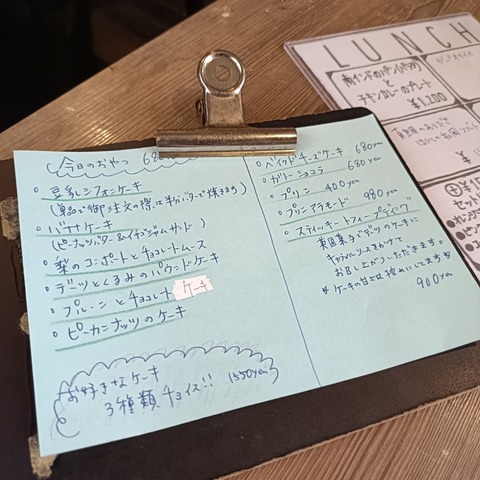 今日のおやつ
豆乳シフォンケーキ
バナナケーキ
(ピーナッツバター&イチゴジャムサンド)
栗のコンポートとチョコレートムース
デーツとくるみのパウンドケーキ
プルーンとチョコレートケーキ
ピーカンナッツのケーキ
お好きなケーキ
3種類チョイス!! 1550yen
ベイクドチーズケーキ 680yen
ガトーショコラ 680yen
プリン 400yen
プリンアラモード 980yen
スティッキートフィープディング
英国菓子でデーツのケーキに
キャラメルソースをかけて
お召し上がりいただきます。
ケーキの甘さは控えめにしてます
900yen
LUNCH
南インドのパン(パラタ)
と
チキンカレーのプレート
¥1,200